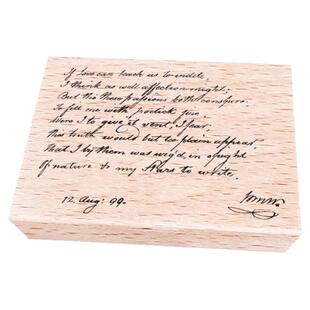 If Love can teach us to indite,
I think as well affection might;
But tho these passions both conspire
To fill me with poetick fire
Were I to give it vent, I fear,
this truth would but too plain appear,
That I by them was urg'd in spight
Of nature to my Stars to write.
12. Aug: 99.